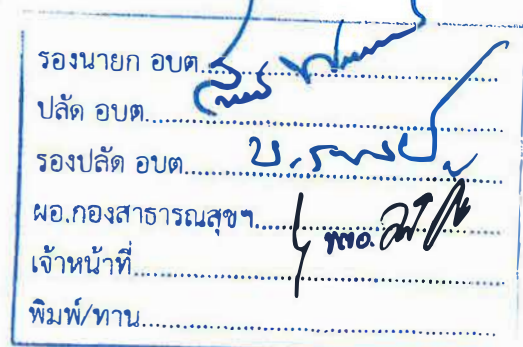 รองนายก อบต.
ปลัด อบต.
รองปลัด อบต.
ผอ.กองสาธารณสุขฯ
เจ้าหน้าที่
พิมพ์/ทาน